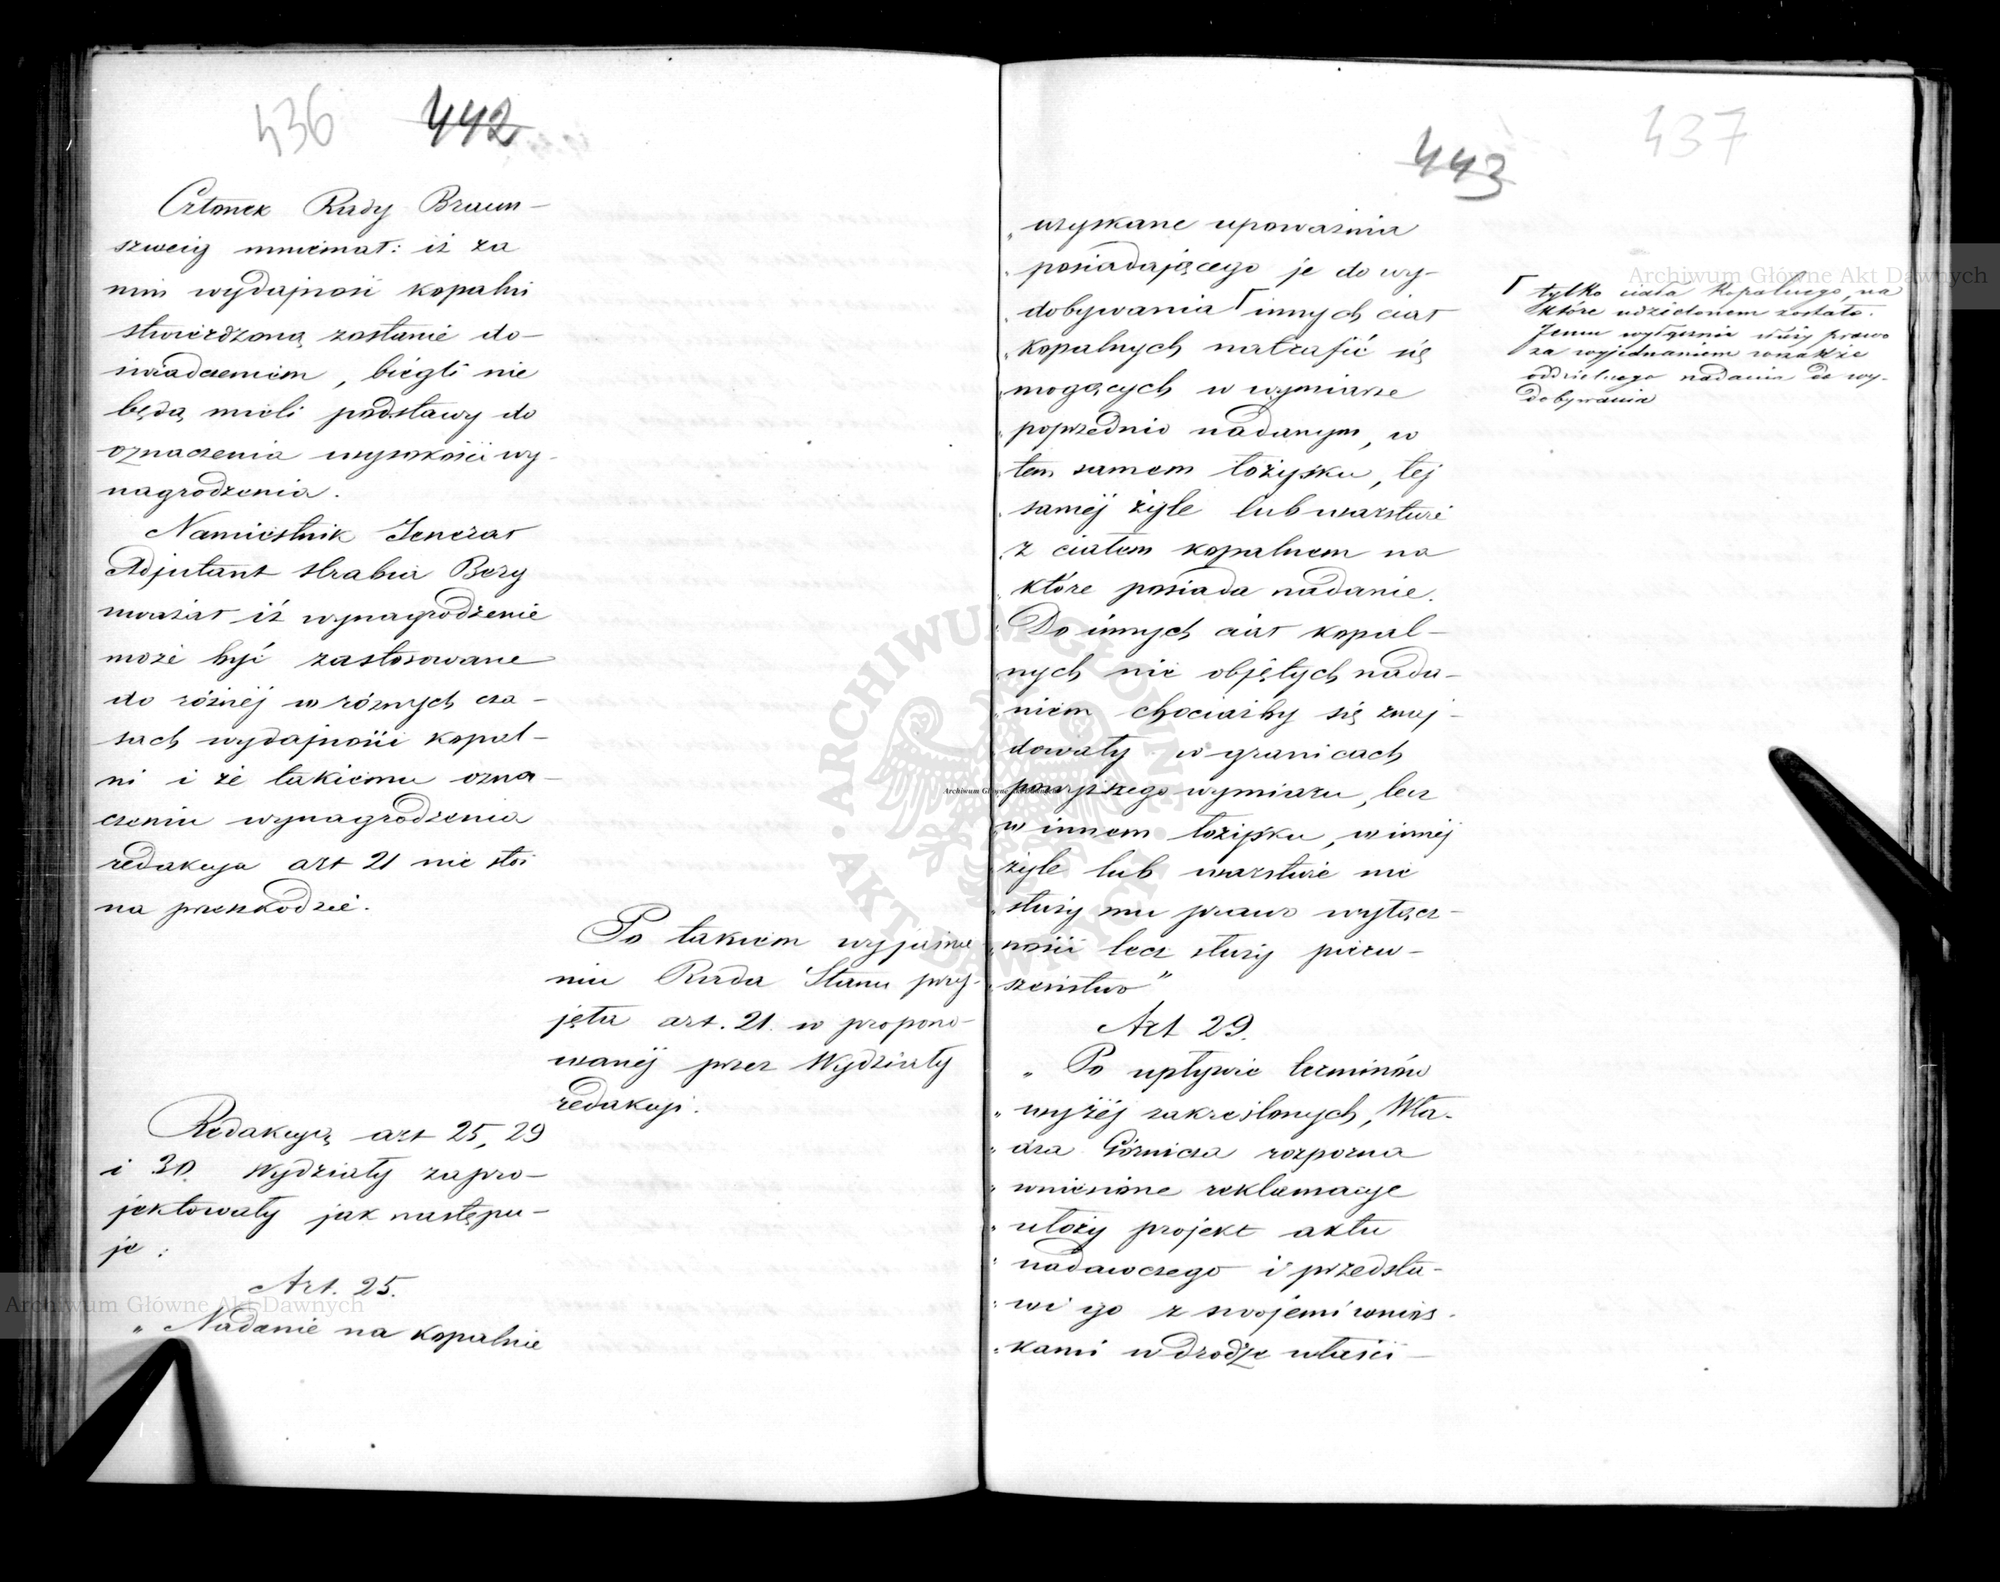 436 442
Członek Rady Braun-
szweig mniemał: iż za
nim wydajność kopalni
stwierdzoną zostanie do-
świadczeniem, biegli nie
będą mieli podstawy do
oznaczenia wysokości wy-
nagrodzenia.
Namiestnik Jenerał
Adjutant Hrabia Berg
uważał iż wynagrodzenie
może być zastosowane
do różnéj w różnych cza-
sach wydajności kopal-
ni i że takiemu ozna-
czeniu wynagrodzenia
redakcja art 21 nie stoi
na przeszkodzie.
Po takiem wyjaśnie
niu Rada Stanu przy-
jęła art. 21. w propono-
wanéj przez Wydziały
redakcji.
Redakcyą art 25, 29
i 30. Wydziały zapro-
jektowały jak następu-
je:
Art. 25.
„Nadanie na kopalnie
443 437
„uzyskane upoważnia
„posiadającego je do wy-
„dobywania Γ innych ciał
„kopalnych natrafić się
„mogących w wymiarze
„poprzednio nadanym, w
„tem samem łożysku, tej
„saméj żyle lub warstwie
„z ciałem kopalnem na
„które posiada nadanie.
„Do innych ciał kopal-
„nych nie objętych nada-
„niem chociażby się znaj-
„dowały w granicach
„powyższego wymiaru, lecz
„w innem łożysku, w innéj
„żyle lub warstwie nie
„służy mu prawo wyłącz-
„ności lecz służy pierw-
„szeństwo"
Γ tylko ciała kopalnego, na
które udzielonem zostało.
Jemu wyłącznie służy prawo
za wyjednaniem wszakże
oddzielnego nadania do wy-
dobywania
Art 29.
„Po upływie terminów
„wyżéj zakreślonych, Wła-
„dza Górnicza rozpozna
„wniesione reklamacye
„ułoży projekt aktu
„nadawczego i przedsta-
„wi go z swojemi wnios-
„kami w drodze właści-
Archiwum Główne Akt Dawnych
Archiwum Główne Akt Dawnych
Archiwum Główne Akt Dawnych
ARCHIWUM GŁÓWNE AKT DAWNYCH